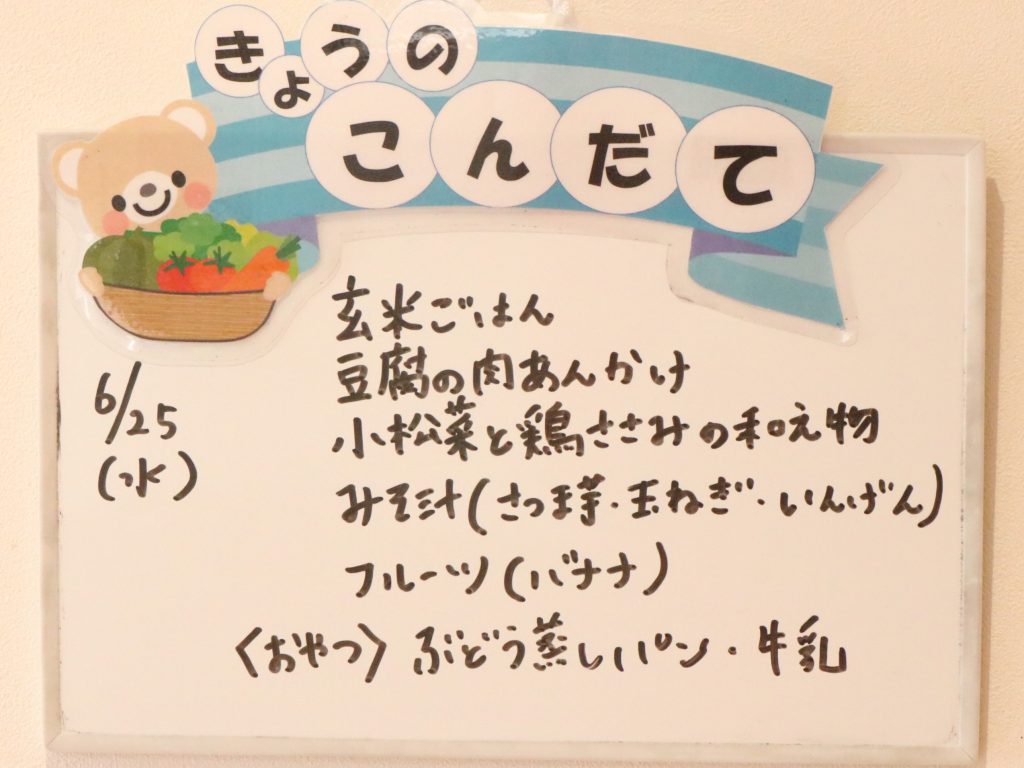 きょうの
こんだて
6/25
(水)
玄米ごはん
豆腐の肉あんかけ
小松菜と鶏ささみの和え物
みそ汁(さつま芋・玉ねぎ・いんげん)
フルーツ(バナナ)
〈おやつ〉ぶどう蒸しパン・牛乳